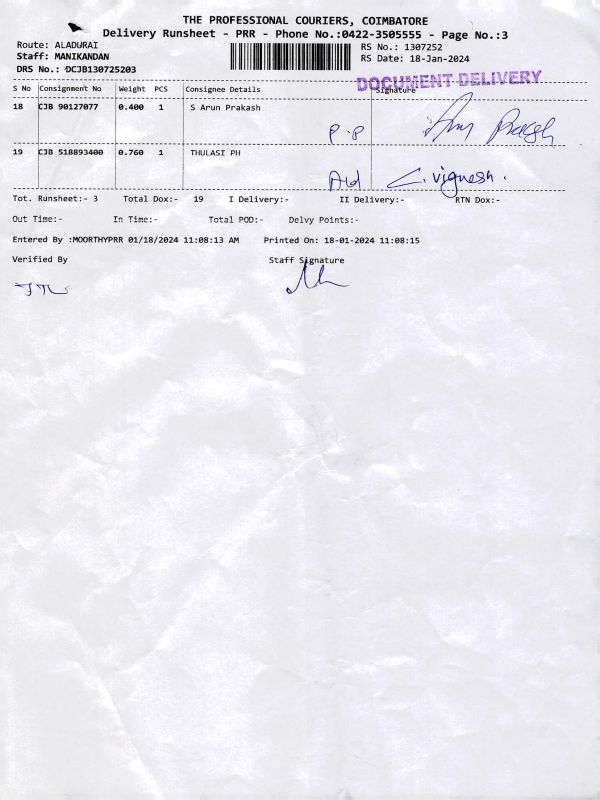 THE PROFESSIONAL COURIERS, COIMBATORE
Delivery Runsheet - PRR - Phone No.:0422-3505555 - Page No.:3
Route: ALADURAI RS No.: 1307252
Staff: MANIKANDAN RS Date: 18-Jan-2024
DRS No.: DCJB130725203
DOCUMENT DELIVERY
S No Consignment No Weight PCS Consignee Details Signature
18 CJB 90127077 0.400 1 S Arun Prakash
P.P Arun Prakash
19 CJB 518893400 0.760 1 THULASI PH
C. Vignesh.
Tot. Runsheet:- 3 Total Dox:- 19 I Delivery:- II Delivery:- RTN Dox:-
Out Time:- In Time:- Total POD:- Delvy Points:-
Entered By :MOORTHYPRR 01/18/2024 11:08:13 AM Printed On: 18-01-2024 11:08:15
Verified By Staff Signature